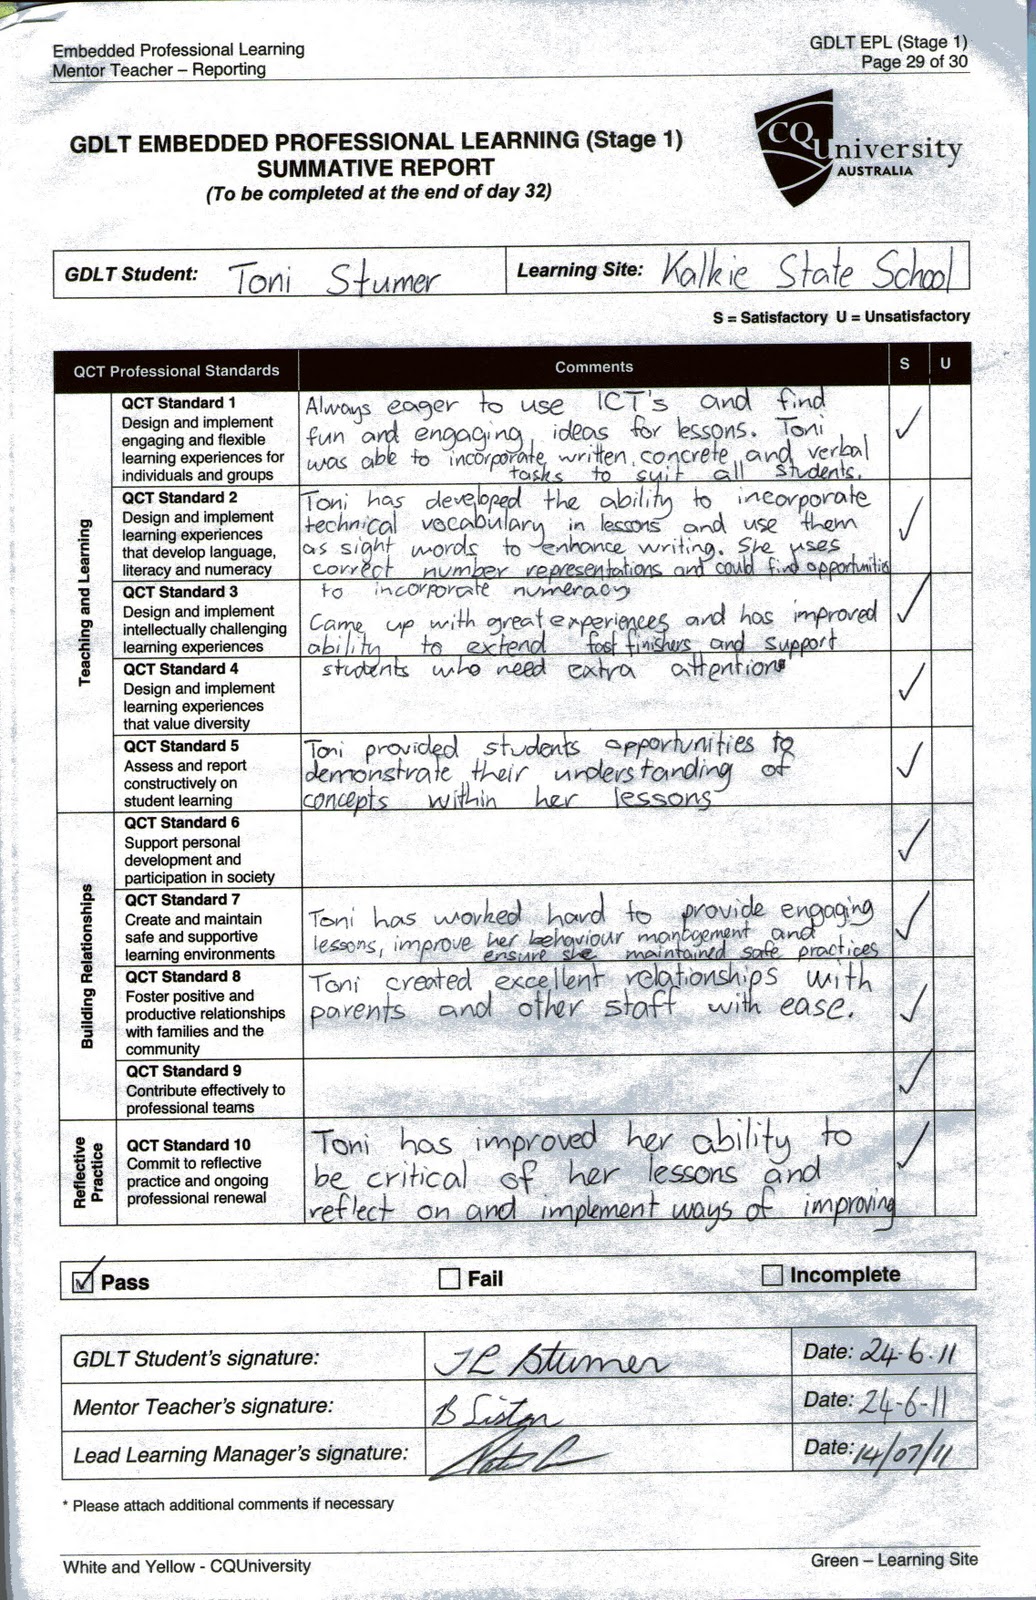 Embedded Professional Learning
Mentor Teacher – Reporting
GDLT EPL (Stage 1)
Page 29 of 30
GDLT EMBEDDED PROFESSIONAL LEARNING (Stage 1)
SUMMATIVE REPORT
(To be completed at the end of day 32)
CQUniversity
AUSTRALIA
GDLT Student: Toni Stumer
Learning Site: Kalkie State School
S = Satisfactory U = Unsatisfactory
QCT Professional Standards
Comments
S
U
Teaching and Learning
QCT Standard 1
Design and implement
engaging and flexible
learning experiences for
individuals and groups
Always eager to use ICT's and find
fun and engaging ideas for lessons. Toni
was able to incorporate written, concrete and verbal
tasks to suit all students.
✓
QCT Standard 2
Design and implement
learning experiences
that develop language,
literacy and numeracy
Toni has developed the ability to incorporate
technical vocabulary in lessons and use them
as sight words to enhance writing. She uses
correct number representations and could find opportunities
to incorporate numeracy
✓
QCT Standard 3
Design and implement
intellectually challenging
learning experiences
Came up with great experiences and has improved
ability to extend fast finishers and support
students who need extra attention
✓
QCT Standard 4
Design and implement
learning experiences
that value diversity
✓
QCT Standard 5
Assess and report
constructively on
student learning
Toni provided students opportunities to
demonstrate their understanding of
concepts within her lessons
✓
Building Relationships
QCT Standard 6
Support personal
development and
participation in society
✓
QCT Standard 7
Create and maintain
safe and supportive
learning environments
Toni has worked hard to provide engaging
lessons, improve her behaviour management and
ensure she maintained safe practices
✓
QCT Standard 8
Foster positive and
productive relationships
with families and the
community
Toni created excellent relationships with
parents and other staff with ease.
✓
QCT Standard 9
Contribute effectively to
professional teams
✓
Reflective
Practice
QCT Standard 10
Commit to reflective
practice and ongoing
professional renewal
Toni has improved her ability to
be critical of her lessons and
reflect on and implement ways of improving
✓
☑ Pass
☐ Fail
☐ Incomplete
GDLT Student's signature: JL Stumer
Date: 24-6-11
Mentor Teacher's signature: B
Date: 24-6-11
Lead Learning Manager's signature:
Date: 14/07/11
* Please attach additional comments if necessary
White and Yellow - CQUniversity
Green – Learning Site